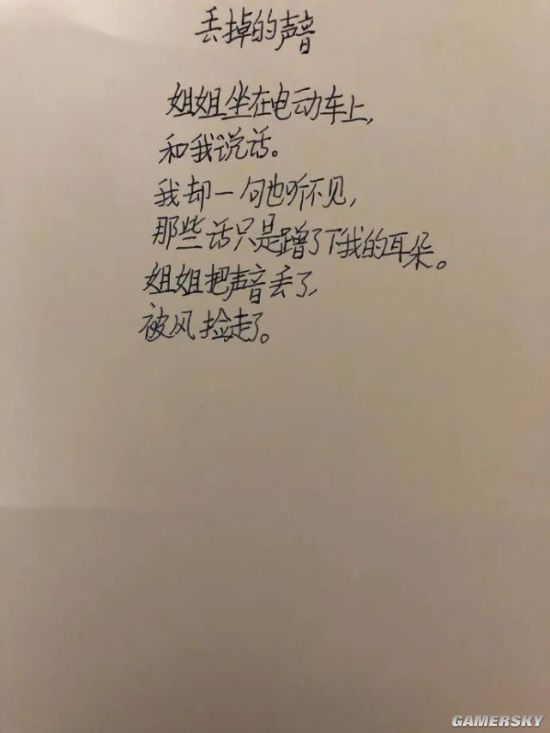 丢掉的声音
姐姐坐在电动车上,
和我说话。
我却一句也听不见,
那些话只是蹭了下我的耳朵。
姐姐把声音丢了,
被风捡走了。
GAMERSKY